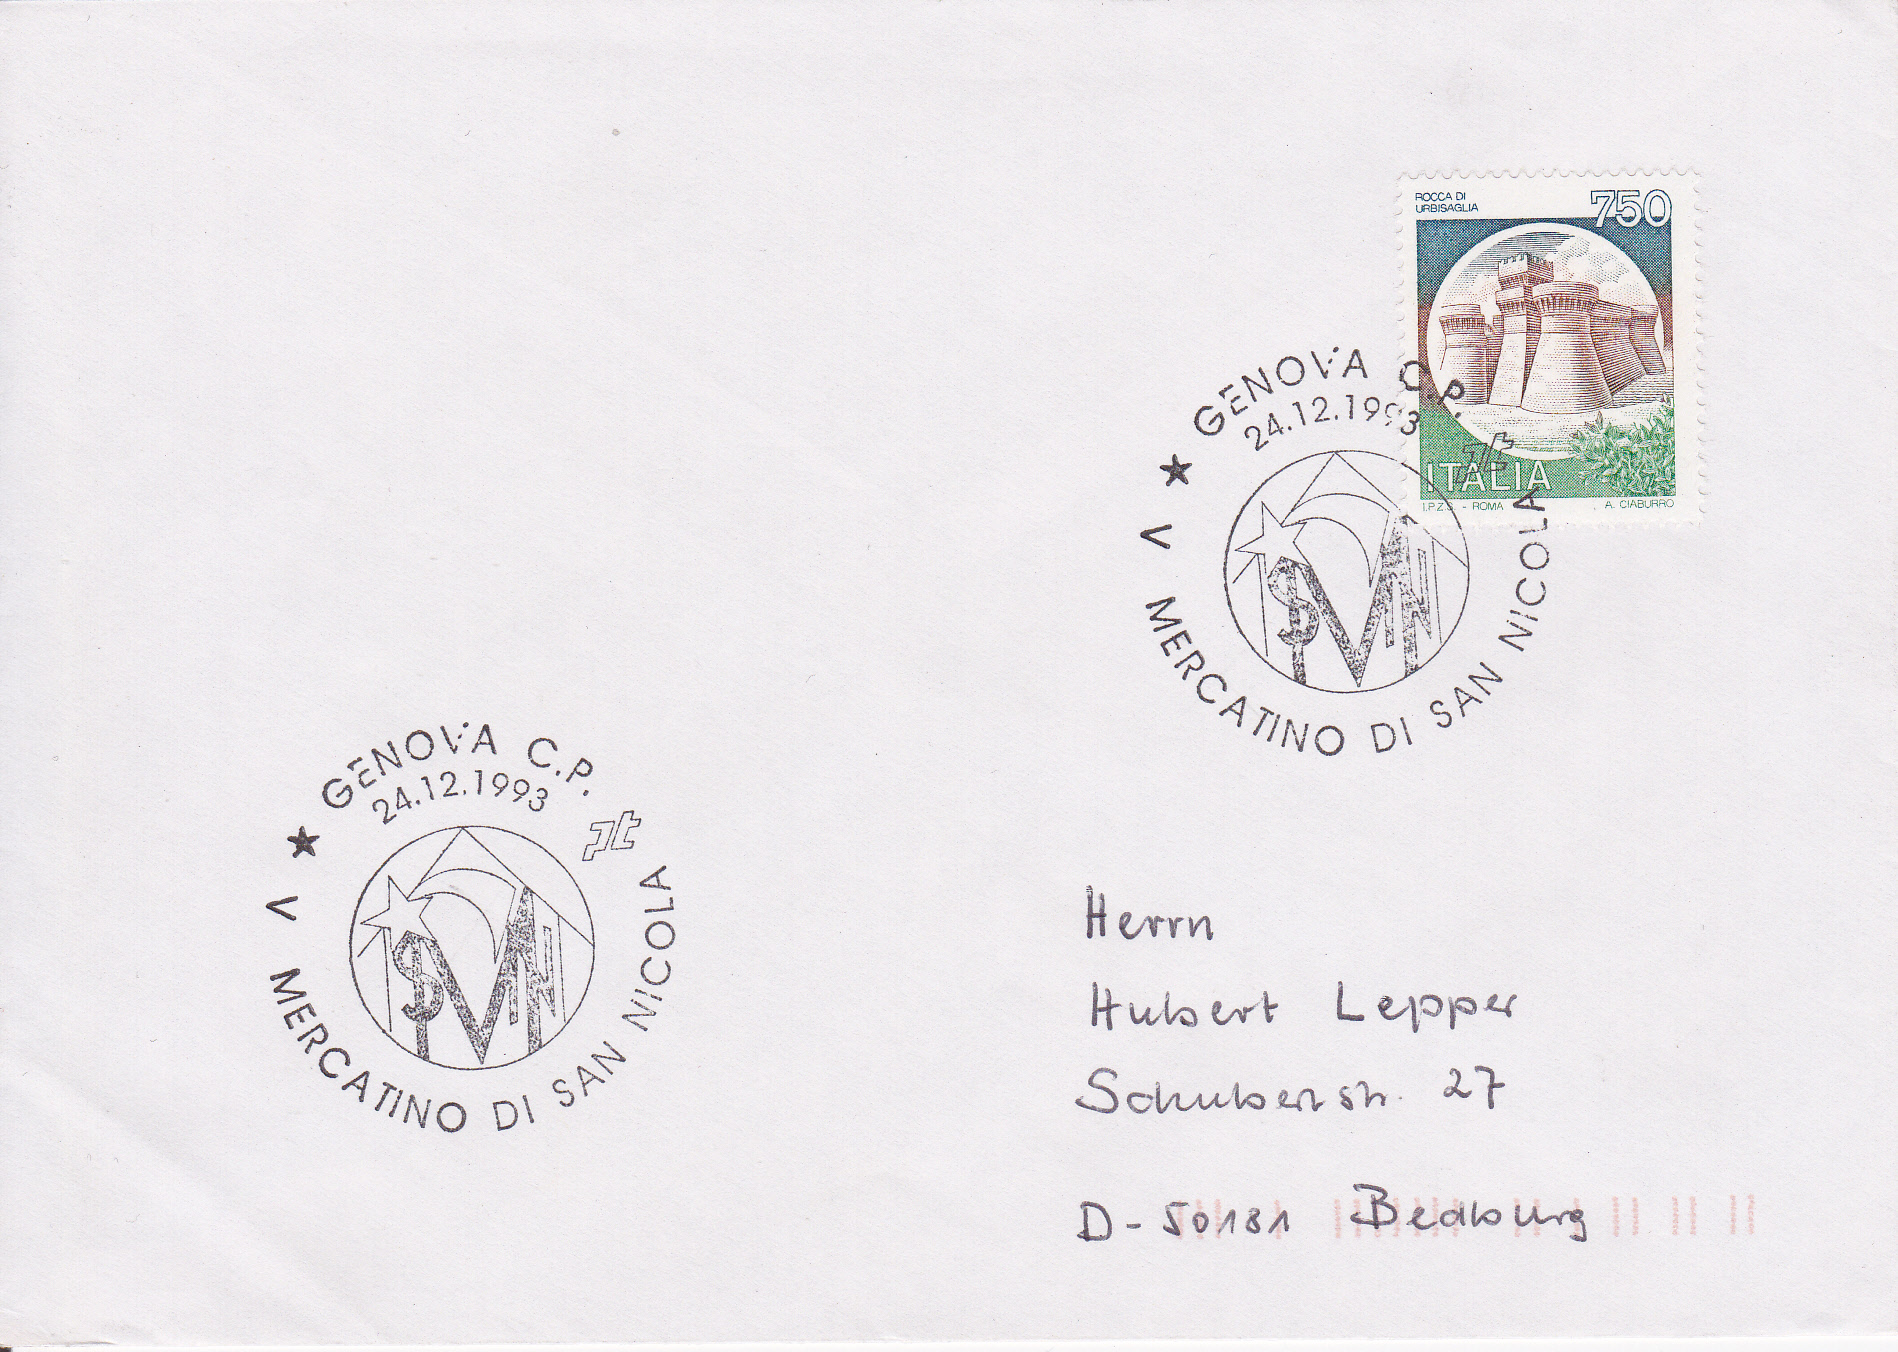 ROCCA DI
URBISAGLIA
750
ITALIA
I.P.Z.S. - ROMA
A. CIABURRO
GENOVA C.P.
24.12.1993
pt
★ V MERCATINO DI SAN NICOLA
SMN
GENOVA C.P.
24.12.1993
pt
★ V MERCATINO DI SAN NICOLA
SMN
Herrn
Hubert Lepper
Schubertstr. 27
D-50181 Bedburg